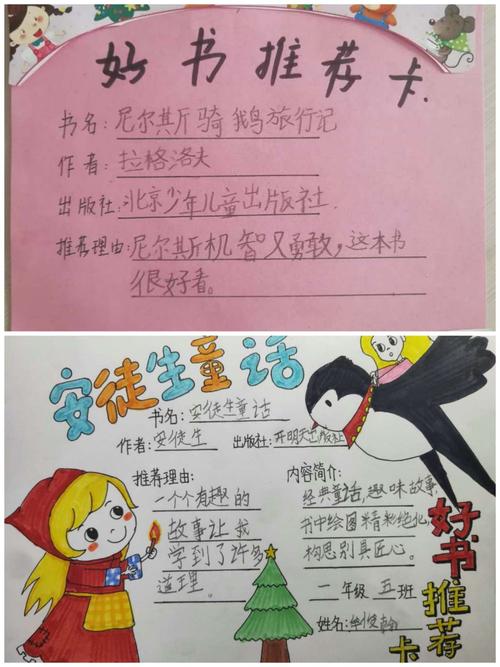 好书推荐卡
书名:尼尔斯骑鹅旅行记
作者:拉格洛夫
出版社:北京少年儿童出版社
推荐理由:尼尔斯机智又勇敢,这本书
很好看。
安徒生童话
书名:安徒生童话
作者:安徒生 出版社:开明天地出版社
推荐理由:
一个个有趣的
故事让我
学到了许多
道理。
内容简介:
经典童话,趣味故事,
书中绘图精彩绝伦,
构思别具匠心。
一年级 五班
姓名:
好书推荐卡